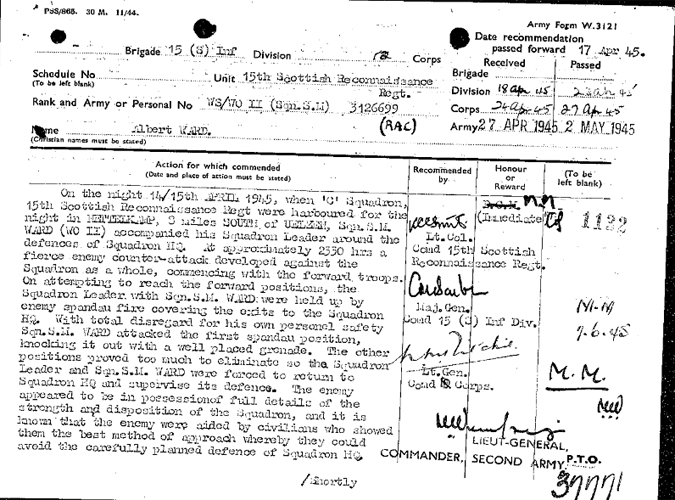 PSS/868. 30 M. 11/44.
Army Form W.3121
Date recommendation
passed forward 17 Apr 45.
Brigade 15 (S) Inf Division Corps
Received Passed
Brigade
Schedule No
(To be left blank)
Unit 15th Scottish Reconnaissance
Regt.
Division 18 Apr 45
Rank and Army or Personal No WS/WO II (Sqn.S.M) 3126699
Corps 24 Apr 45 27 Apr 45
(RAC)
Army 27 APR 1945 2 MAY 1945
Name Albert WARD.
(Christian names must be stated)
Action for which commended
(Date and place of action must be stated)
Recommended
by
Honour
or
Reward
(To be
left blank)
On the night 14/15th APRIL 1945, when 'C' Squadron,
15th Scottish Reconnaissance Regt were harboured for the
night in NETTELKAMP, 8 miles SOUTH of UELZEN, Sqn.S.M.
WARD (WO II) accompanied his Squadron Leader around the
defences of Squadron HQ. At approximately 2330 hrs a
fierce enemy counter-attack developed against the
Squadron as a whole, commencing with the forward troops.
On attempting to reach the forward positions, the
Squadron Leader with Sqn.S.M. WARD were held up by
enemy spandau fire covering the exits to the Squadron
HQ. With total disregard for his own personel safety
Sqn.S.M. WARD attacked the first spandau position,
knocking it out with a well placed grenade. The other
positions proved too much to eliminate so the Squadron
Leader and Sqn.S.M. WARD were forced to return to
Squadron HQ and supervise its defence. The enemy
appeared to be in possession of full details of the
strength and disposition of the Squadron, and it is
known that the enemy were aided by civilians who showed
them the best method of approach whereby they could
avoid the carefully planned defence of Squadron HQ.
/Shortly
D.C.M. M.M.
(Immediate)
1122
Lt. Col.
Comd 15th Scottish
Reconnaissance Regt.
Maj. Gen.
Comd 15 (S) Inf Div.
Lt. Gen.
Comd 8 Corps.
7.6.45
M.M.
LIEUT-GENERAL,
COMMANDER, SECOND ARMY.
P.T.O.